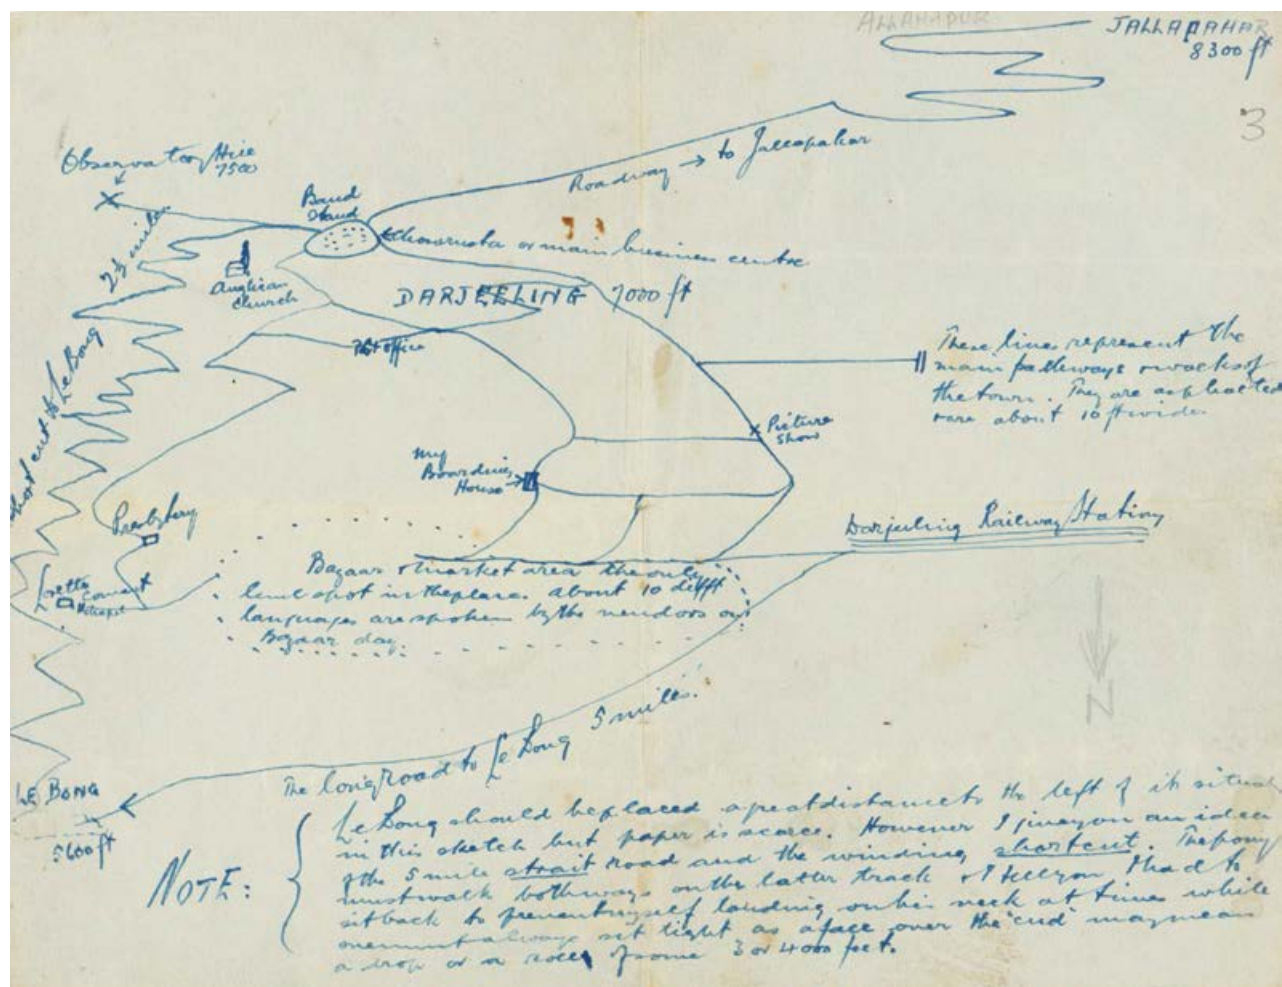 ALLAHAPUR
JALLAPAHAR
8300 ft
3
Observatory Hill
7500
Band
Stand
Roadway → to Jallapahar
Chowrusta or main business centre
2½ miles
Anglican
Church
DARJEELING 7000 ft
Post office
These lines represent the
main pathways & walks of
the town. They are asphalted
& are about 10 ft wide.
Picture
Show
My
Boarding
House
Short cut to Le Bong
Presbytery
Darjeeling Railway Station
Loretto
Convent
Bazaar & market area the only
level spot in the place. About 10 diffft
languages are spoken by the vendors on
Bazaar day.
N
The long road to Le Bong 5 miles.
LE BONG
5600 ft
NOTE:
Le Bong should be placed a great distance to the left of its
in this sketch but paper is scarce. However I give you an idea
of the 5 mile strait road and the winding shortcut. The pony
must walk both ways on the latter track & I tell you I had to
sit back to prevent myself landing on his neck at times while
one must always sit tight as a over the "cud" may mean
a drop or a roll of some 3 or 4000 feet.